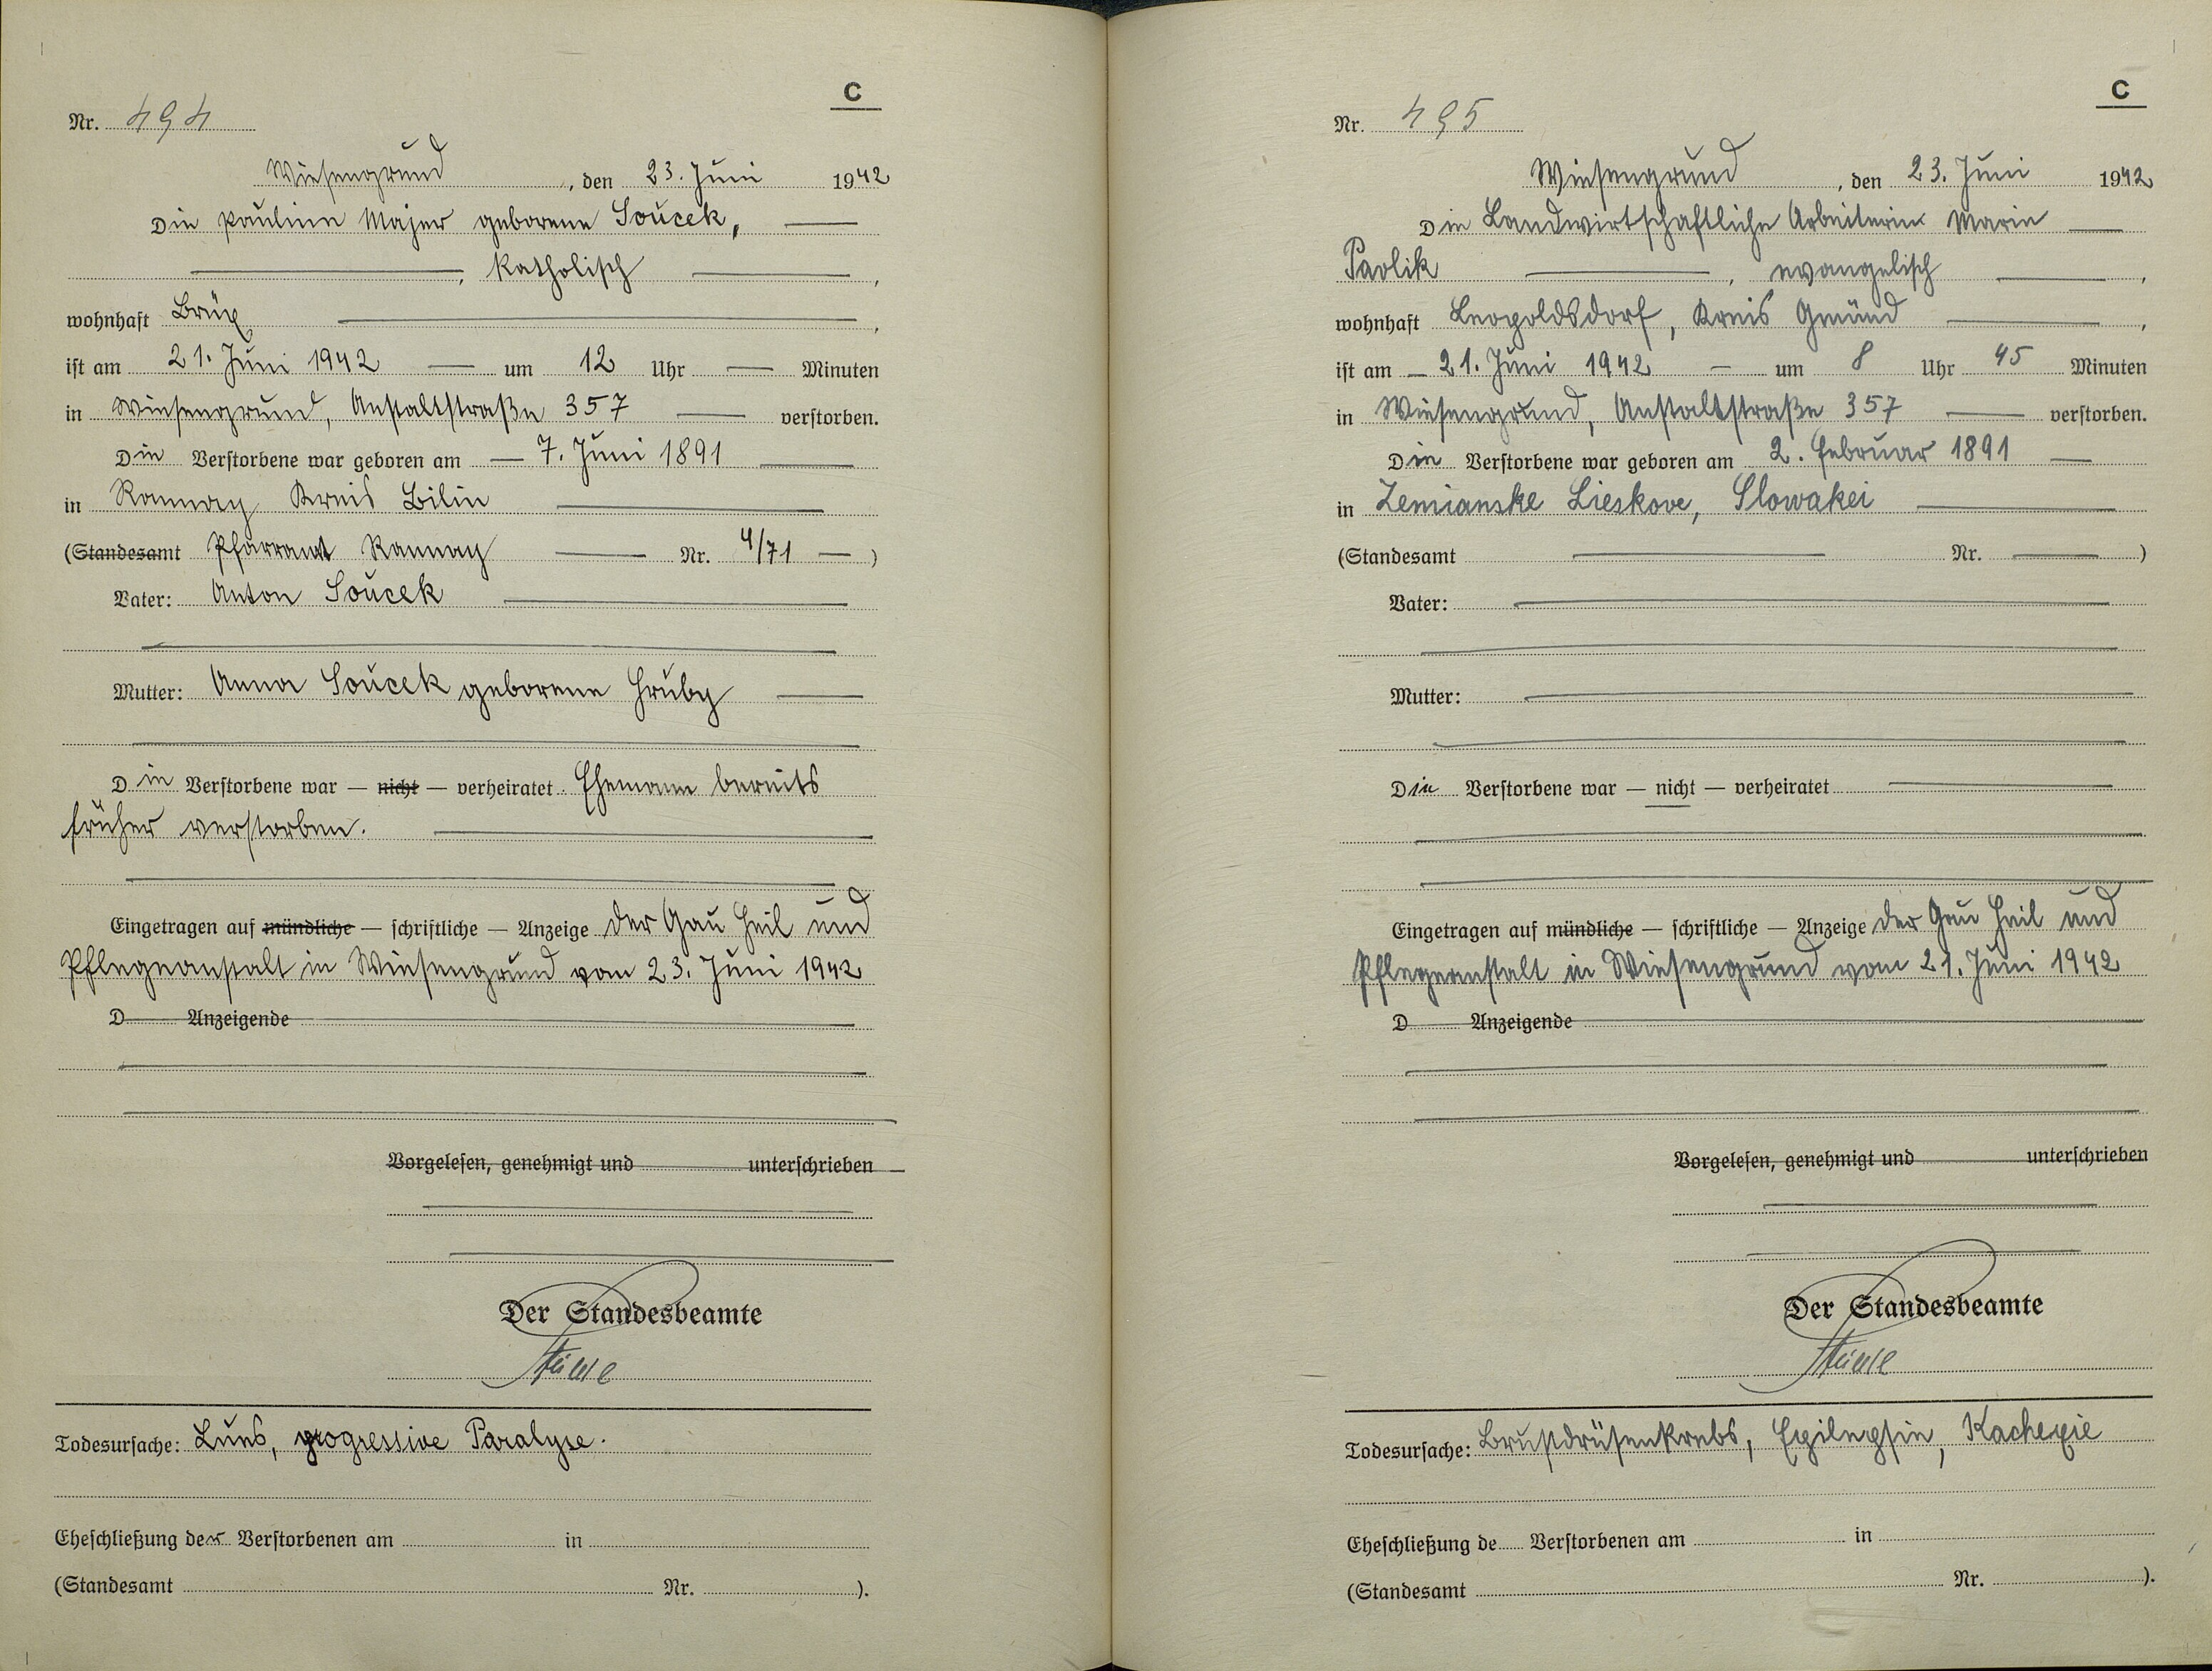 C
Nr. 494
Wiesengrund, den 23. Juni 1942
Die Pauline Majer geborene Souček,
, katholisch ,
wohnhaft Brüx ,
ist am 21. Juni 1942 — um 12 Uhr — Minuten
in Wiesengrund, Anstaltstraße 357 — verstorben.
Die Verstorbene war geboren am — 7. Juni 1891
in Rannay Kreis Bilin
(Standesamt Pfarramt Rannay — Nr. 4/71 — )
Vater: Anton Souček
Mutter: Anna Souček geborene Hruby
Die Verstorbene war — nicht — verheiratet. Ehemann bereits
früher verstorben.
Eingetragen auf mündliche — schriftliche — Anzeige der Gau Heil und
Pflegeanstalt in Wiesengrund vom 23. Juni 1942
D Anzeigende
Vorgelesen, genehmigt und unterschrieben
Der Standesbeamte
Todesursache: Lues, progressive Paralyse.
Eheschließung der Verstorbenen am in
(Standesamt Nr. ).
C
Nr. 495
Wiesengrund, den 23. Juni 1942
Die Landwirtschaftliche Arbeiterin Marie
Pavlik , evangelisch ,
wohnhaft Leopoldsdorf, Kreis Gmünd ,
ist am — 21. Juni 1942 — um 8 Uhr 45 Minuten
in Wiesengrund, Anstaltstraße 357 — verstorben.
Die Verstorbene war geboren am 2. Februar 1891 —
in Zemianske Lieskove, Slowakei
(Standesamt Nr. )
Vater:
Mutter:
Die Verstorbene war — nicht — verheiratet
Eingetragen auf mündliche — schriftliche — Anzeige der Gau Heil und
Pflegeanstalt in Wiesengrund vom 21. Juni 1942
D Anzeigende
Vorgelesen, genehmigt und unterschrieben
Der Standesbeamte
Todesursache: Brustdrüsenkrebs, Epilepsie, Kachexie
Eheschließung de Verstorbenen am in
(Standesamt Nr. ).